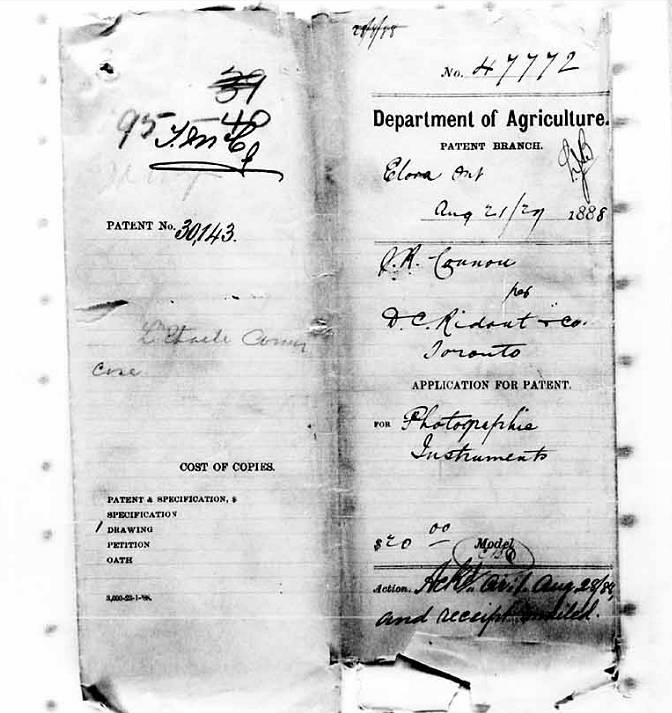 39
95 40
PATENT No. 30,143.
Case
COST OF COPIES.
PATENT & SPECIFICATION, $
SPECIFICATION
/ DRAWING
PETITION
OATH
3,000-23-1-'88.
No. 47772
Department of Agriculture.
PATENT BRANCH.
Elora Ont
Aug 21/29 1888
J.R. Connon
per
D.C. Ridout & Co.
Toronto
APPLICATION FOR PATENT.
FOR Photographic
Instruments
$20 00 Model
Action. Aug. 28/88,
and receipt mailed.